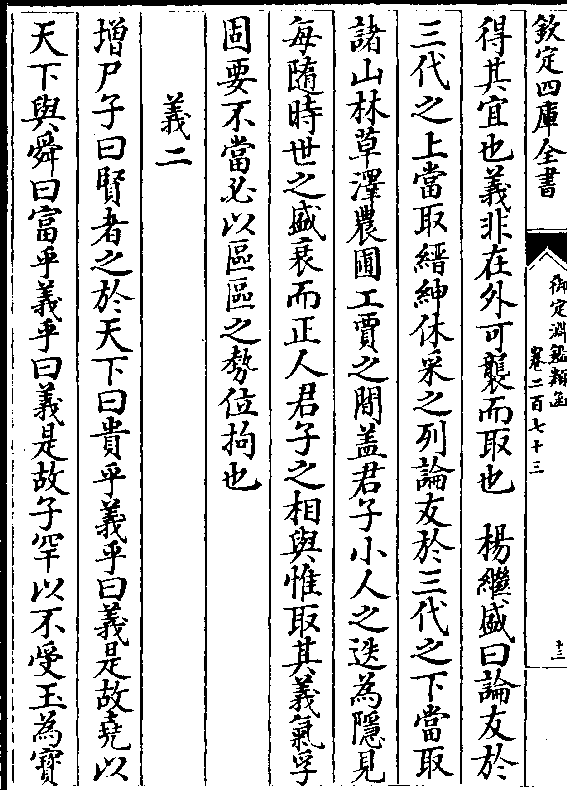 欽定四庫全書
御定淵鑑類函
卷二百七十三
十三
得其宜也義非在外可襲而取也　楊繼盛曰論友於
三代之上當取縉紳休采之列論友於三代之下當取
諸山林草澤農圃工賈之間盖君子小人之迭為隱見
每隨時世之盛衰而正人君子之相與惟取其義氣孚
固要不當必以區區之勢位拘也
義二
増尸子曰賢者之於天下曰貴乎義乎曰義是故堯以
天下與舜曰富乎義乎曰義是故子罕以不受玉為寳